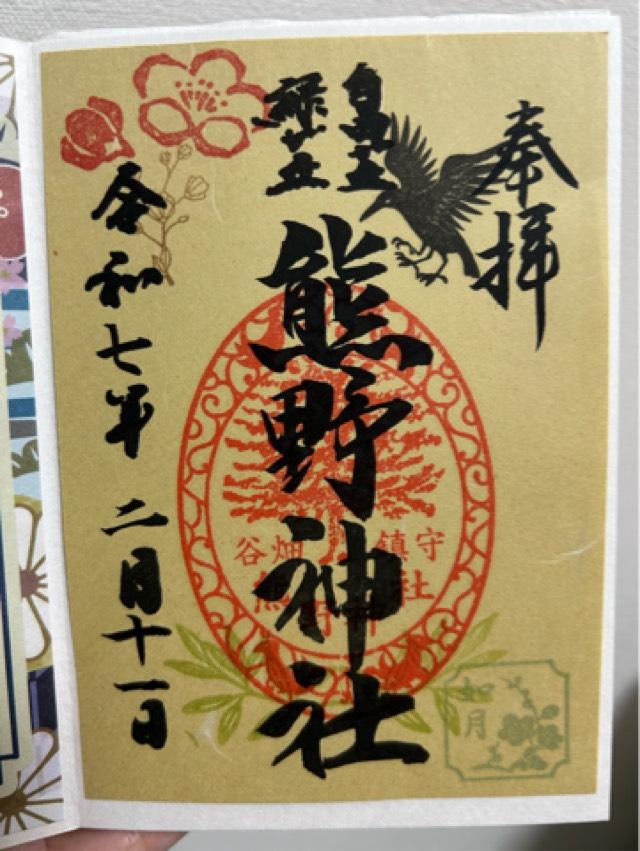 奉拝
熊野神社
谷畑 鎮守
熊野神社
令和七年 二月十一日
如月